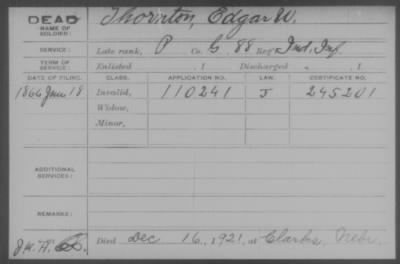 DEAD Thornton, Edgar W.
NAME OF SOLDIER:
SERVICE: Late rank, P Co. G, 88 Reg't Ind. Inf.
TERM OF SERVICE: Enlisted , 1 Discharged , 1
DATE OF FILING. CLASS. APPLICATION NO. LAW. CERTIFICATE NO.
1866 Jun 18 Invalid, 110241 J 245201
Widow,
Minor,
ADDITIONAL SERVICES:
REMARKS:
Died Dec 16, 1921, at Clarks, Nebr.